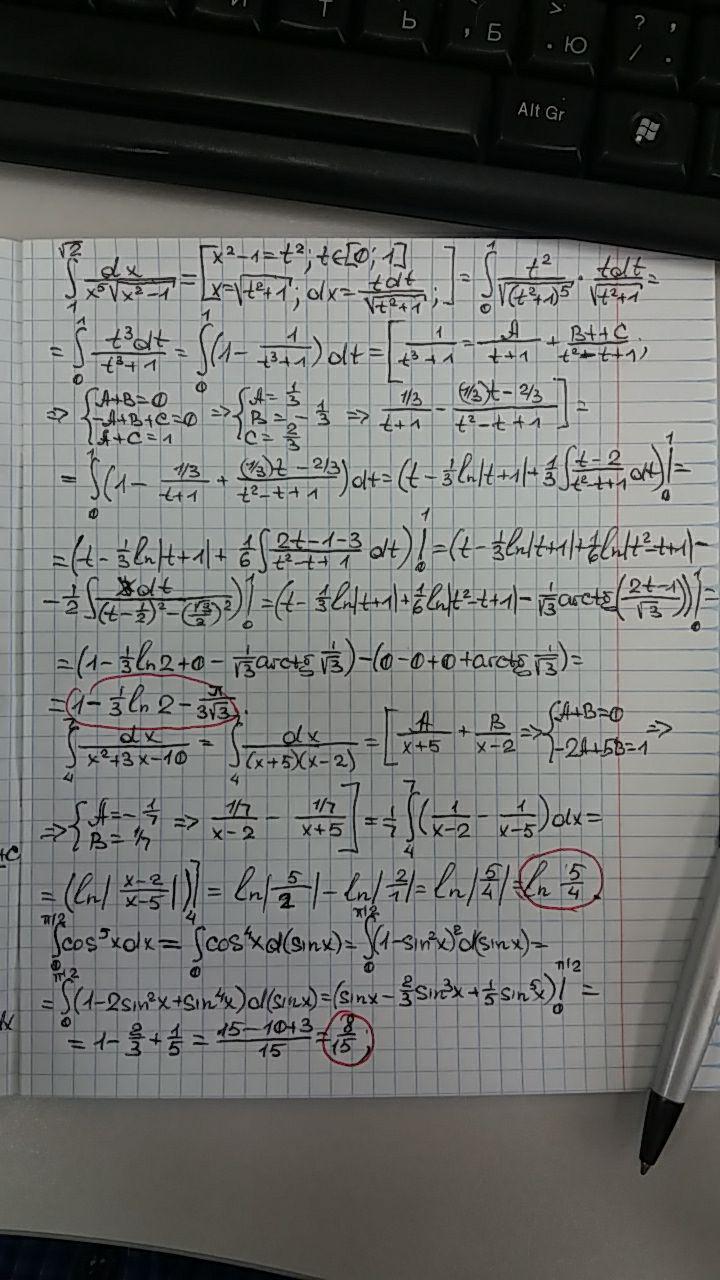 И Т Ь , Б > . Ю ? , / .
Alt Gr
∫₁^√2 dx/(x⁵√(x²−1)) = [x²−1=t²; t∈[0;1] x=√(t²+1); dx=tdt/√(t²+1);] = ∫₀¹ t²/√((t²+1)⁵) · tdt/√(t²+1) =
= ∫₀¹ t³dt/(t³+1) = ∫₀¹(1 − 1/(t³+1))dt = [1/(t³+1) = A/(t+1) + (Bt+C)/(t²−t+1);
⇒ {A+B=0 −A+B+C=0 A+C=1 ⇒ {A=1/3 B=−1/3 C=2/3 ⇒ (1/3)/(t+1) − ((1/3)t−2/3)/(t²−t+1)] =
= ∫₀¹(1 − (1/3)/(t+1) + ((1/3)t−2/3)/(t²−t+1))dt = (t − 1/3 ln|t+1| + 1/3 ∫(t−2)/(t²−t+1) dt)|₀¹ =
= (t − 1/3 ln|t+1| + 1/6 ∫(2t−1−3)/(t²−t+1) dt)|₀¹ = (t − 1/3 ln|t+1| + 1/6 ln|t²−t+1| −
− 1/2 ∫dt/((t−1/2)²−(√3/2)²))|₀¹ = (t − 1/3 ln|t+1| + 1/6 ln|t²−t+1| − 1/√3 arctg((2t−1)/√3))|₀¹ =
= (1 − 1/3 ln2 + 0 − 1/√3 arctg 1/√3) − (0−0+0+arctg 1/√3) =
= 1 − 1/3 ln2 − π/(3√3).
∫₄⁷ dx/(x²+3x−10) = ∫₄⁷ dx/((x+5)(x−2)) = [A/(x+5) + B/(x−2) ⇒ {A+B=0 −2A+5B=1 ⇒
⇒ {A=−1/7 B=1/7 ⇒ (1/7)/(x−2) − (1/7)/(x+5)] = 1/7 ∫₄⁷(1/(x−2) − 1/(x−5))dx =
= (ln|(x−2)/(x−5)|)]₄⁷ = ln|5/2| − ln|2/1| = ln|5/4| = ln 5/4.
∫₀^π/2 cos⁵xdx = ∫₀ cos⁴xd(sinx) = ∫₀^π/2(1−sin²x)²d(sinx) =
= ∫₀^π/2(1−2sin²x+sin⁴x)d(sinx) = (sinx − 2/3 sin³x + 1/5 sin⁵x)|₀^π/2 =
= 1 − 2/3 + 1/5 = (15−10+3)/15 = 8/15;